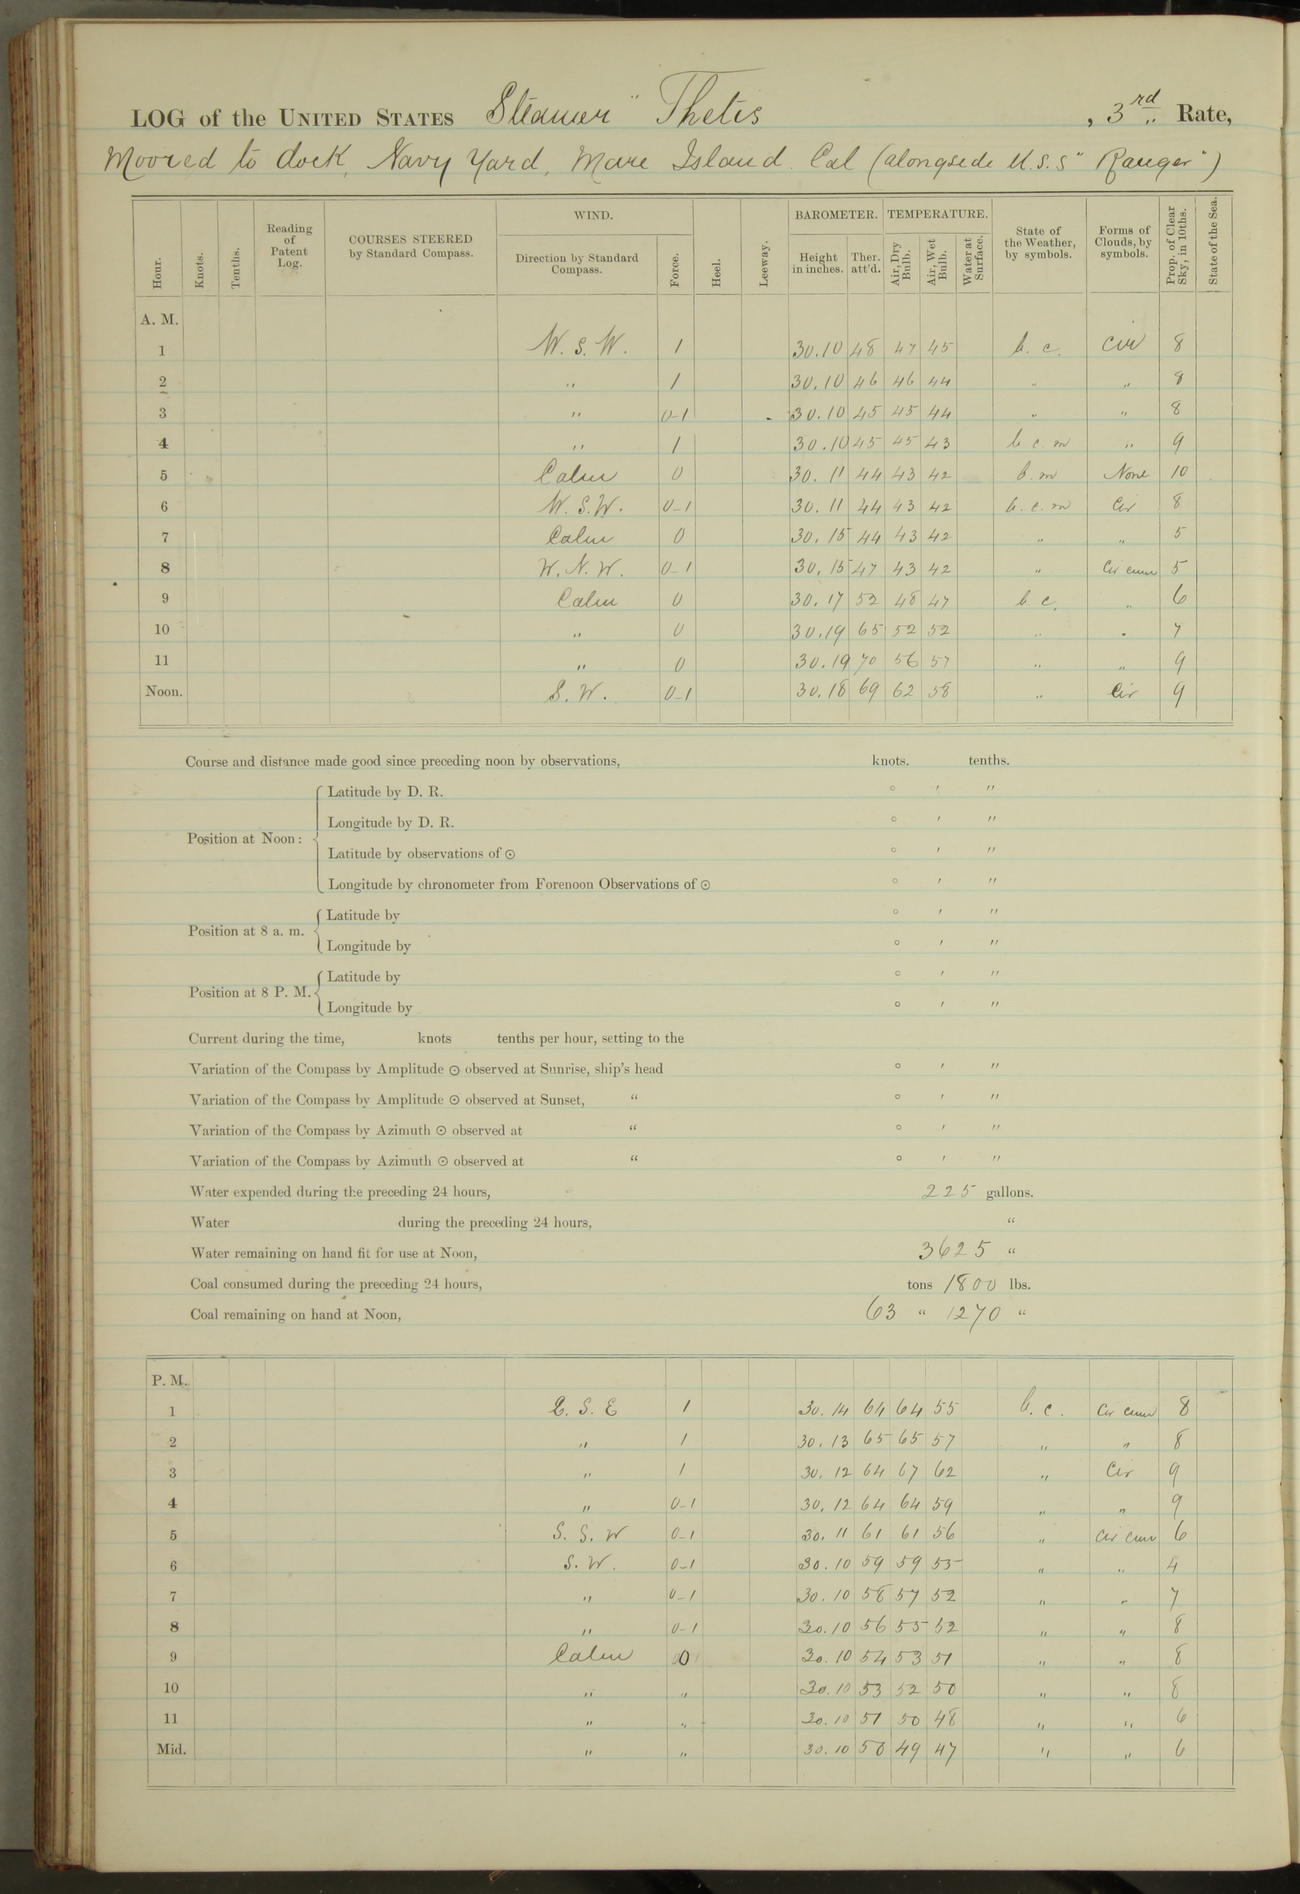 LOG of the UNITED STATES Steamer "Thetis , 3rd Rate,
Moored to dock, Navy Yard, Mare Island. Cal (alongside U.S.S "Ranger")
Hour. Knots. Tenths. Reading of Patent Log. COURSES STEERED by Standard Compass. WIND. Direction by Standard Compass. Force. Heel. Leeway. BAROMETER. Height in inches. Ther. att'd. TEMPERATURE. Air, Dry Bulb. Air, Wet Bulb. Water at Surface. State of the Weather, by symbols. Forms of Clouds, by symbols. Prop. of Clear Sky, in 10ths. State of the Sea.
A. M.
1 W. S. W. 1 30.10 48 47 45 b. c. Cir 8
2 " 1 30.10 46 46 44 " " 8
3 " 0-1 30.10 45 45 44 " " 8
4 " 1 30.10 45 45 43 b c. m " 9
5 Calm 0 30.11 44 43 42 b. m None 10
6 W. S. W. 0-1 30.11 44 43 42 b. c. m Cir 8
7 Calm 0 30.15 44 43 42 " " 5
8 W. N. W. 0-1 30.15 47 43 42 " Cir cum 5
9 Calm 0 30.17 52 48 47 b. c. " 6
10 " 0 30.19 65 52 52 " " 7
11 " 0 30.19 70 56 57 " " 9
Noon. S. W. 0-1 30.18 69 62 58 " Cir 9
Course and distance made good since preceding noon by observations, knots. tenths.
Latitude by D. R. ° ′ ″
Longitude by D. R. ° ′ ″
Position at Noon:
Latitude by observations of ☉ ° ′ ″
Longitude by chronometer from Forenoon Observations of ☉ ° ′ ″
Latitude by ° ′ ″
Position at 8 a. m.
Longitude by ° ′ ″
Latitude by ° ′ ″
Position at 8 P. M.
Longitude by ° ′ ″
Current during the time, knots tenths per hour, setting to the
Variation of the Compass by Amplitude ☉ observed at Sunrise, ship's head ° ′ ″
Variation of the Compass by Amplitude ☉ observed at Sunset, “ ° ′ ″
Variation of the Compass by Azimuth ☉ observed at “ ° ′ ″
Variation of the Compass by Azimuth ☉ observed at “ ° ′ ″
Water expended during the preceding 24 hours, 225 gallons.
Water during the preceding 24 hours, “
Water remaining on hand fit for use at Noon, 3625 “
Coal consumed during the preceding 24 hours, tons 1800 lbs.
Coal remaining on hand at Noon, 63 “ 1270 “
P. M.
1 E. S. E 1 30.14 64 64 55 b. c. Cir cum 8
2 " 1 30.13 65 65 57 " " 8
3 " 1 30.12 64 67 62 " Cir 9
4 " 0-1 30.12 64 64 59 " " 9
5 S. S. W 0-1 30.11 61 61 56 " Cir cum 6
6 S. W. 0-1 30.10 59 59 55 " " 4
7 " 0-1 30.10 58 57 52 " " 7
8 " 0-1 30.10 56 55 52 " " 8
9 Calm 0 30.10 54 53 51 " " 8
10 " " 30.10 53 52 50 " " 8
11 " " 30.10 51 50 48 " " 6
Mid. " " 30.10 50 49 47 " " 6